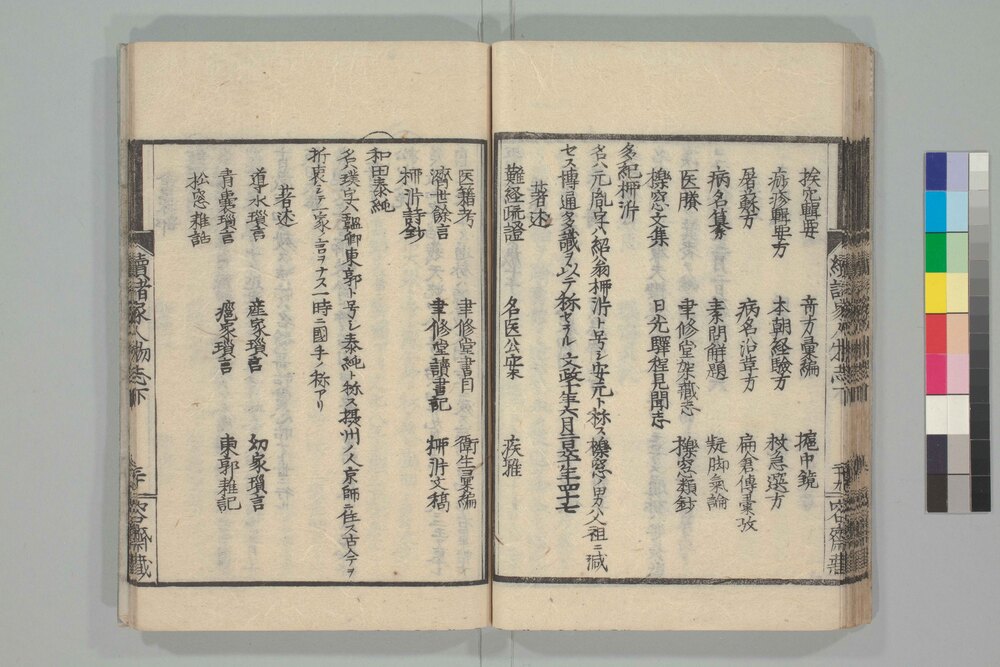 挨穴輯要　奇方彙編　攄中鏡
痧疹輯要方　本朝経驗方　救急選方
屠蘇方　病名沿革方　扁倉傳彙攷
病名纂　素問解題　脚氣論
医賸　聿修堂架藏志　櫟窓類鈔
櫟窓文集　日光驛程見聞志
多紀柳沜
名ハ元胤字ハ紹翁柳沜ト号シ安元ト称ス櫟窓ノ男父祖ニ減
セス博通多識ヲ以テ称セラル文政十年六月三日卒年四十七
著述
難経疏證　名医公案　疾雅
医籍考　聿修堂書目　衛生彙編
濟世餘言　聿修堂讀書記　柳沜文稿
柳沜詩鈔
和田泰純
名璞字韞卿東郭ト号シ泰純ト称ス摂州ノ人京師ニ住ス古今ヲ
折衷シテ家言ヲナス一時ニ國手ノ称アリ
著述
導水瑣言　産家瑣言　幼家瑣言
青嚢瑣言　瘡家瑣言　東郭雜記
松窓雜話
續諸家人物志下
哈齋藏
續諸家人物志下
哈齋藏